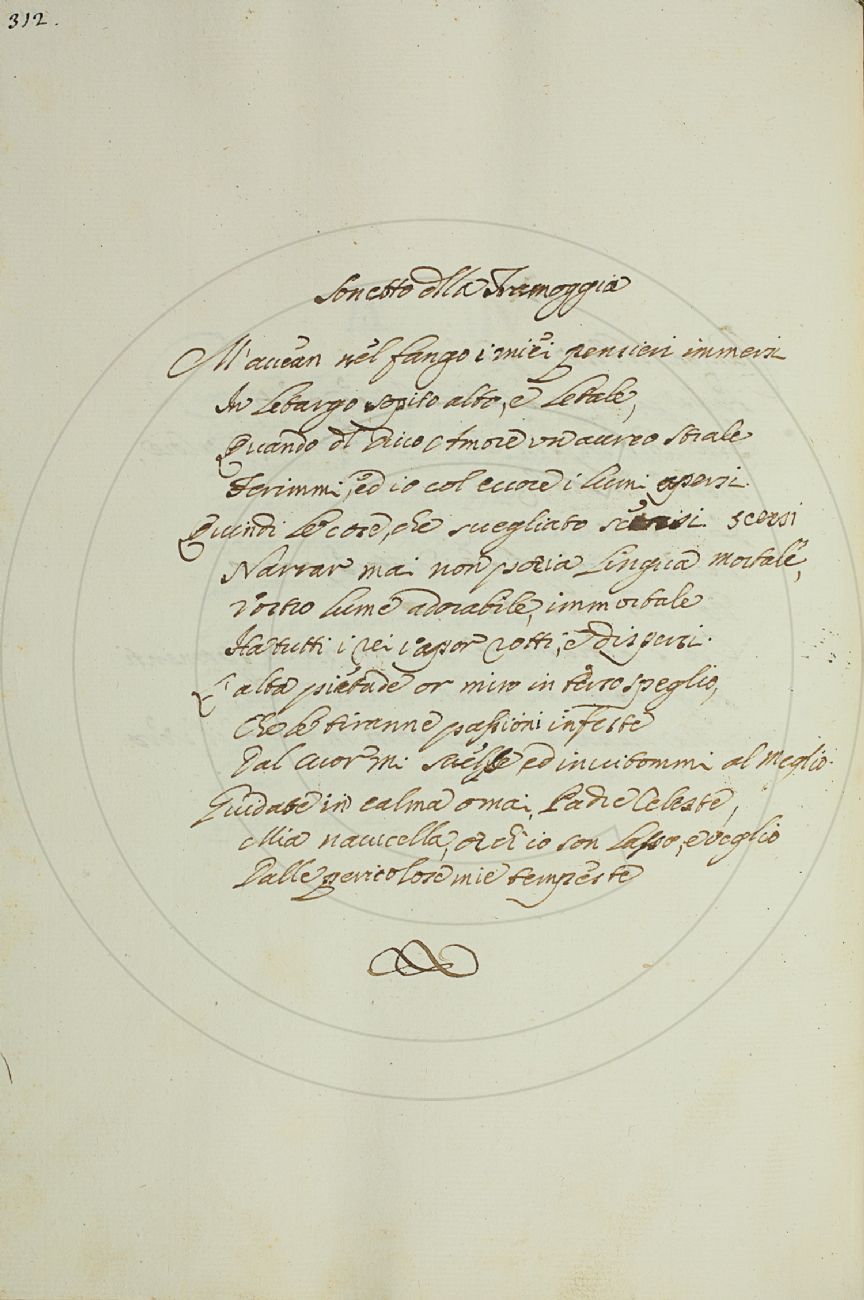 312.
Sonetto della Tramoggia
M'avean nel fango i miei pensieri immersi
In letargo sopito alto, e letale,
Quando di vico Amore un aureo strale
Ferimmi, ed io col cuore i lumi apersi.
Quindi le cose, che svegliato scersi
Narrar mai non potria lingua mortale,
Vostro lume adorabile, immortale
Ha tutti i rei vapor rotti, e dispersi.
L'alta pietade or miro in terso speglio,
Che le tiranne passioni infeste
Dal cuor mi svelse ed invitommi al meglio.
Guidate in calma omai, Padre Celeste,
Mia navicella, or ch'io son lasso, e veglio
Dalle pericolose mie tempeste